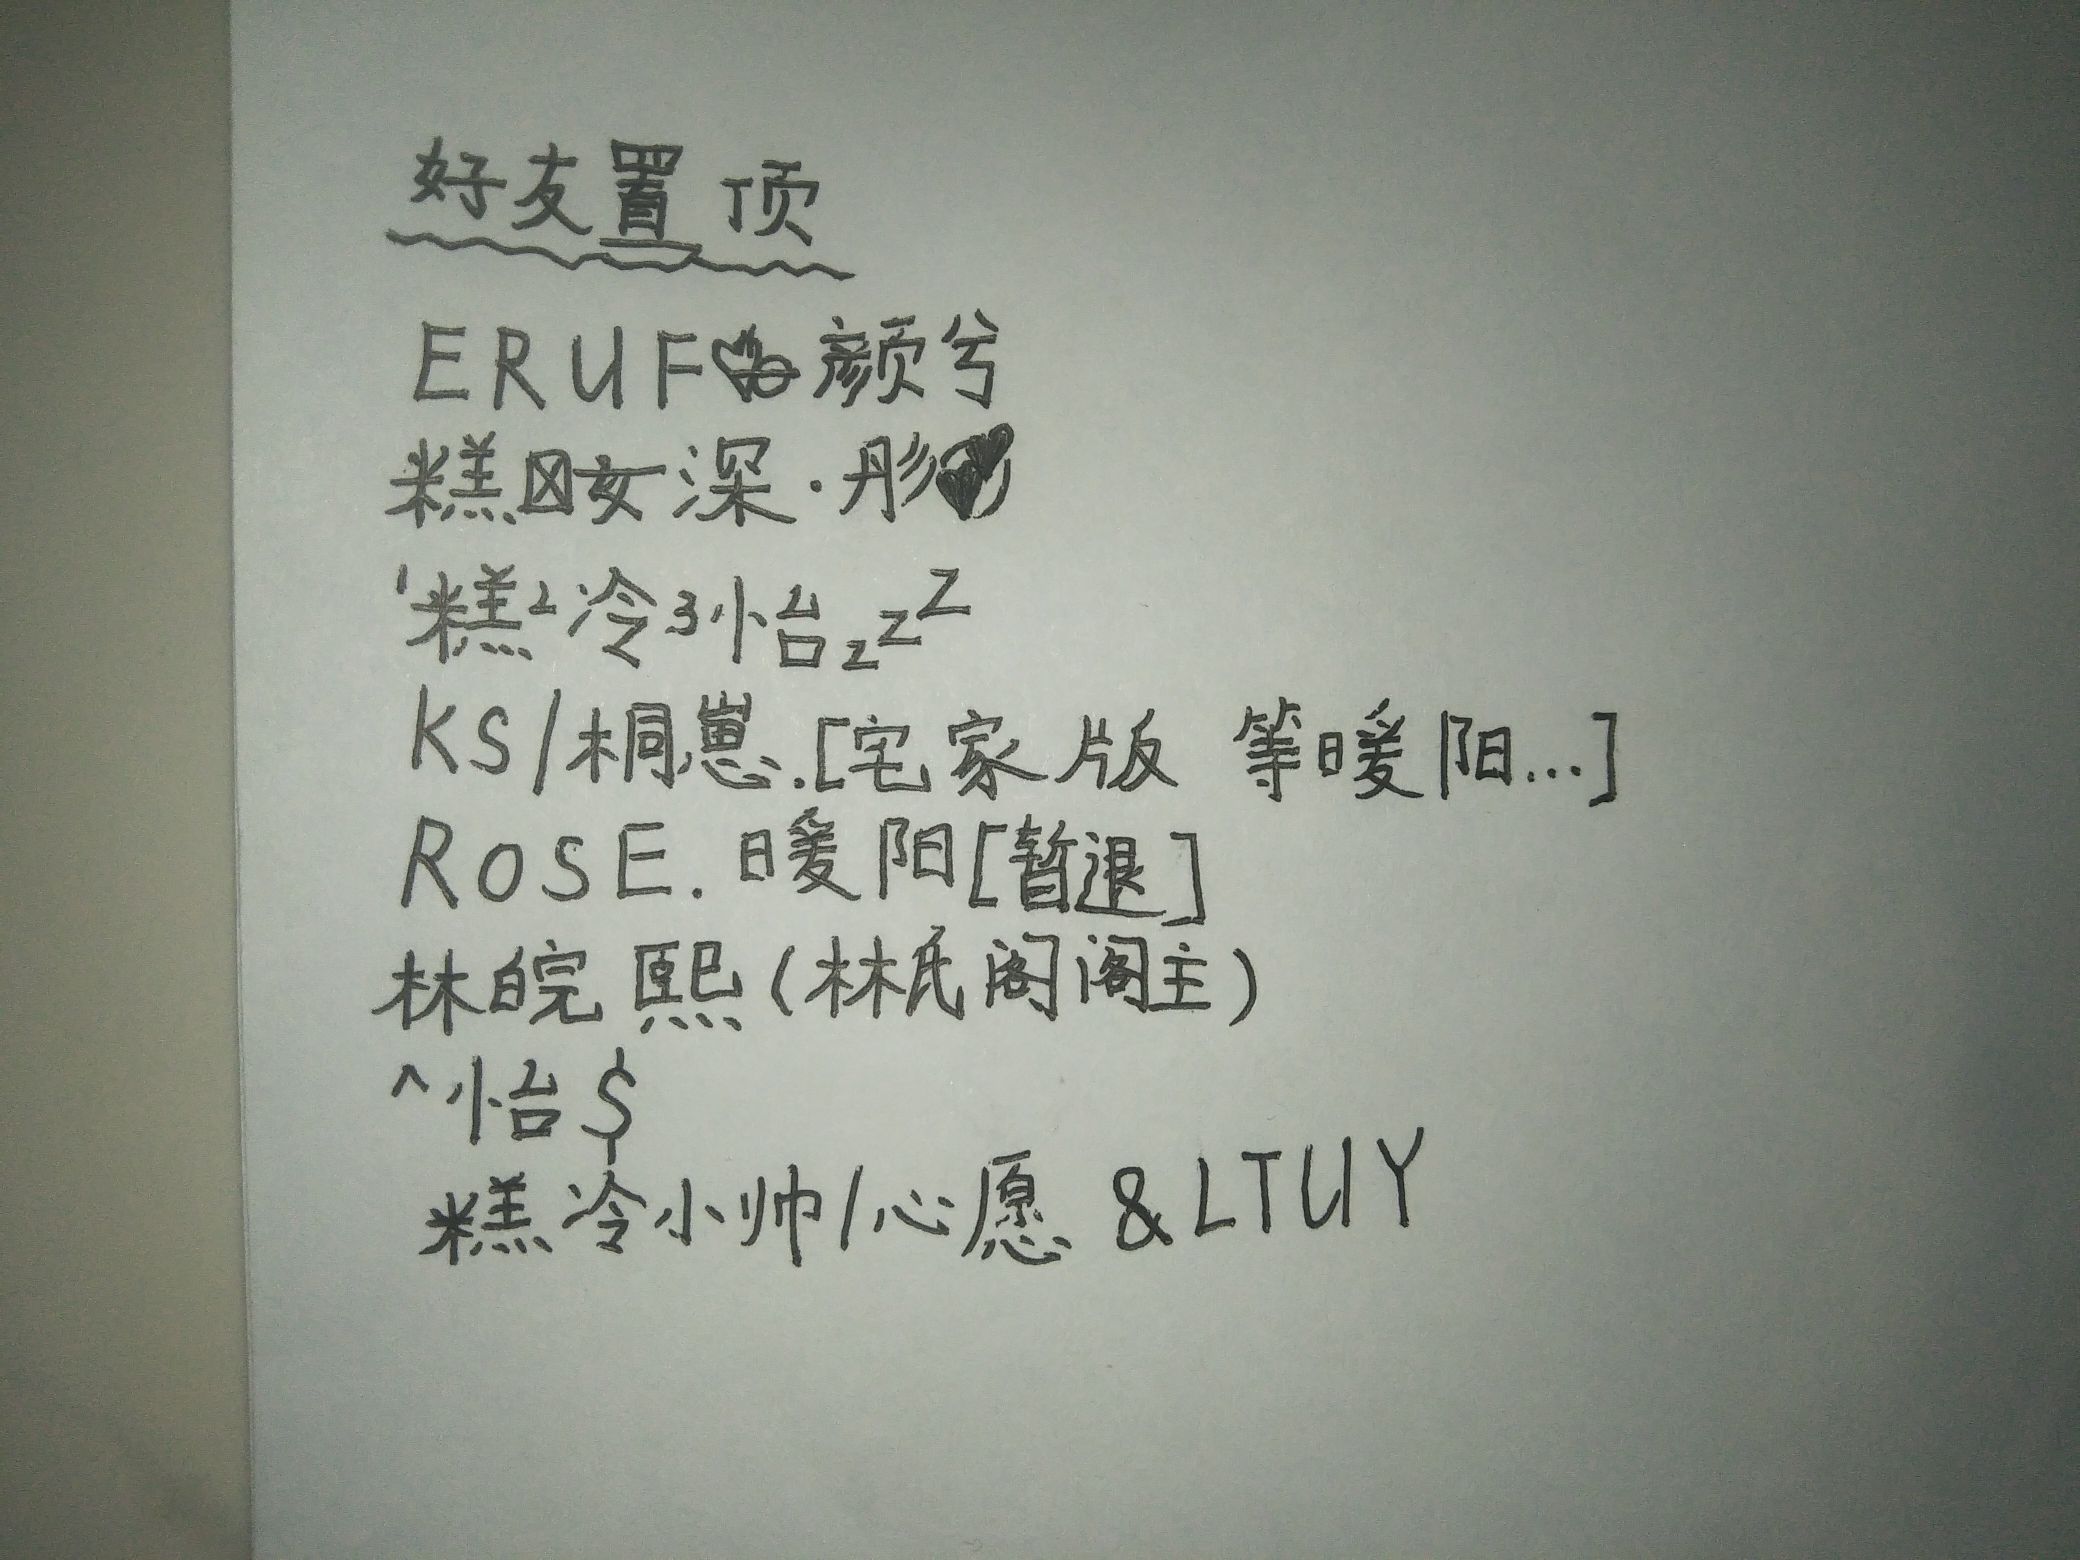 好友置顶
ERUF 颜兮
糕☒女深·彤
1糕2冷3怡zzZ
KS/桐崽.[宅家版 等暖阳...]
ROSE.暖阳[暂退]
林皖熙(林氏阁阁主)
^怡$
糕冷小帅/心愿 &LTUY